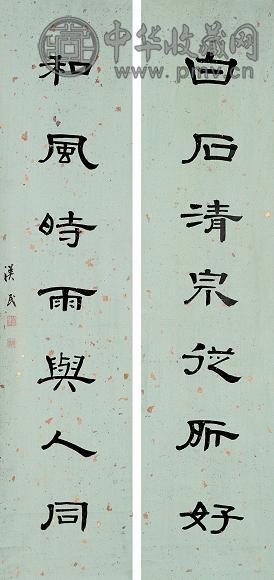 中华收藏网
白石清宗從所好
和風時雨與人同
漢民